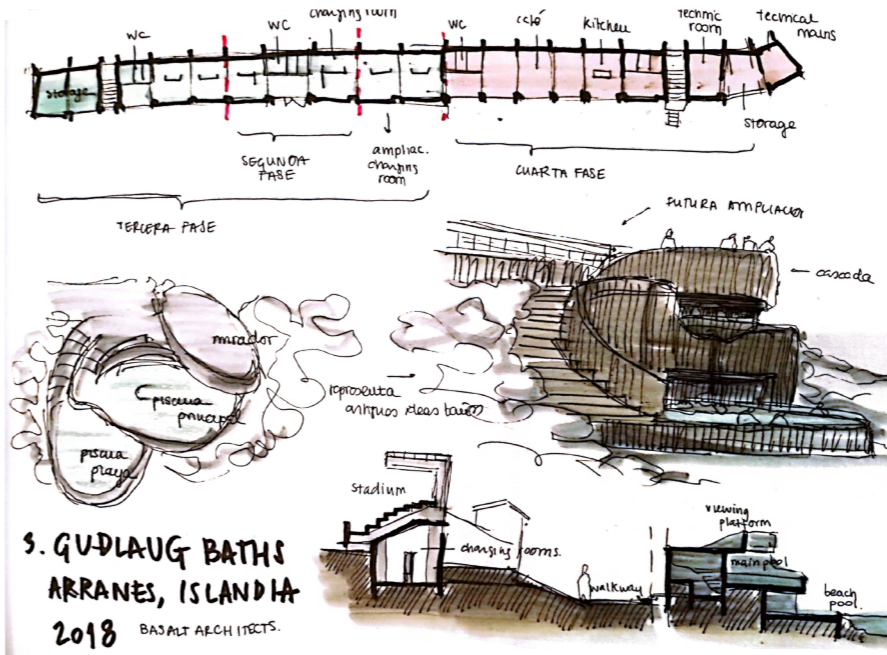 WC
WC
changing room
WC
café
kitchen
technic
room
tecnical
mains
storage
storage
SEGUNDA
FASE
ampliac.
changing
room
CUARTA FASE
TERCERA FASE
FUTURA AMPLIACION
cascada
mirador
piscina
principal
piscina
playa
representa
antiguos ideas
stadium
changing rooms.
walkway
viewing
platform
main pool
beach
pool.
3. GUDLAUG BATHS
ARRANES, ISLANDIA
2018 BASALT ARCHITECTS.